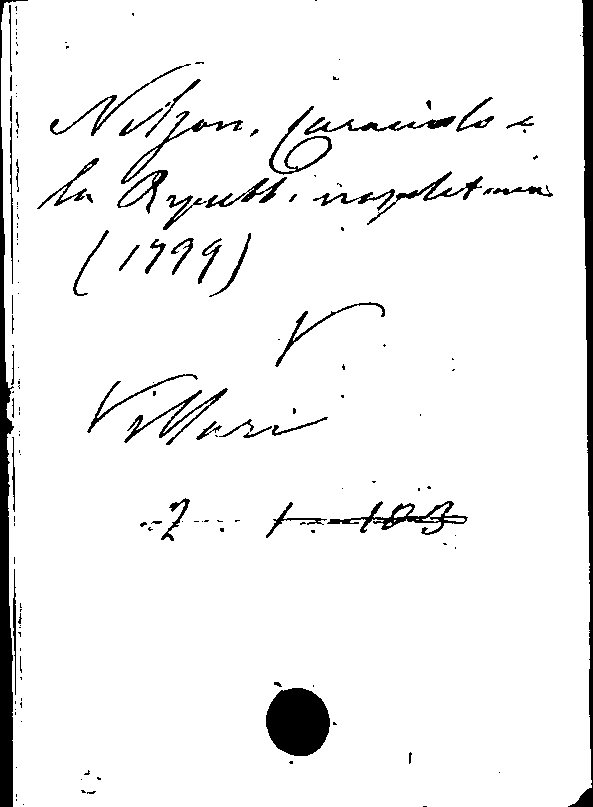 Nelson, Caracciolo e
la Repubb. napoletana
(1799)
V
Villari
2 1 103